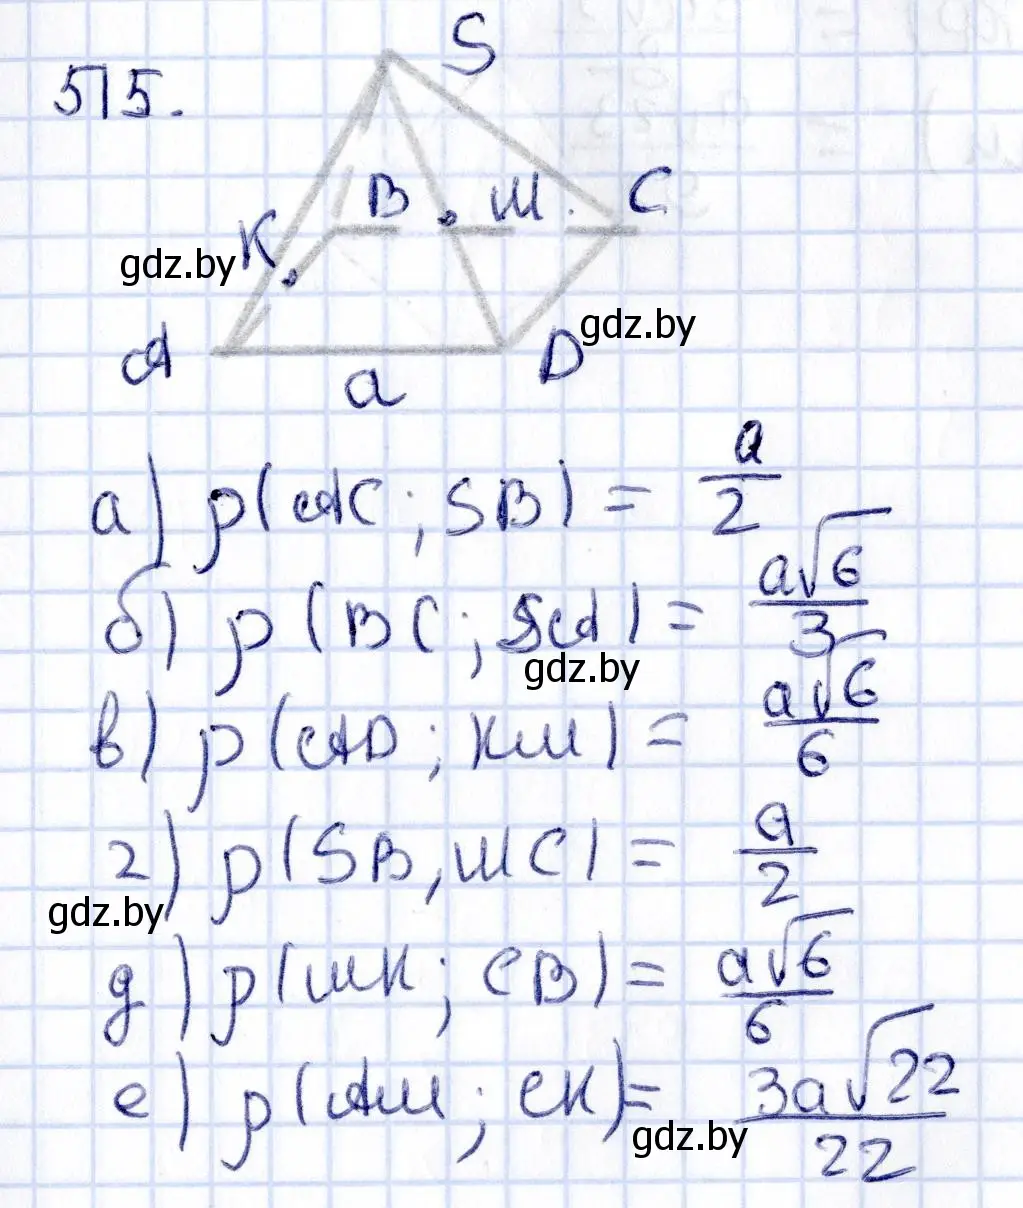 515.
S
B M C
K
gdz.by
gdz.by
A D
a
а) ρ(AC; SB) = a/2
б) ρ(BC; SA) = a√6/3
gdz.by
в) ρ(AD; KM) = a√6/6
г) ρ(SB, MC) = a/2
gdz.by
д) ρ(MK; CB) = a√6/6
е) ρ(AM; CK) = 3a√22/22
gdz.by